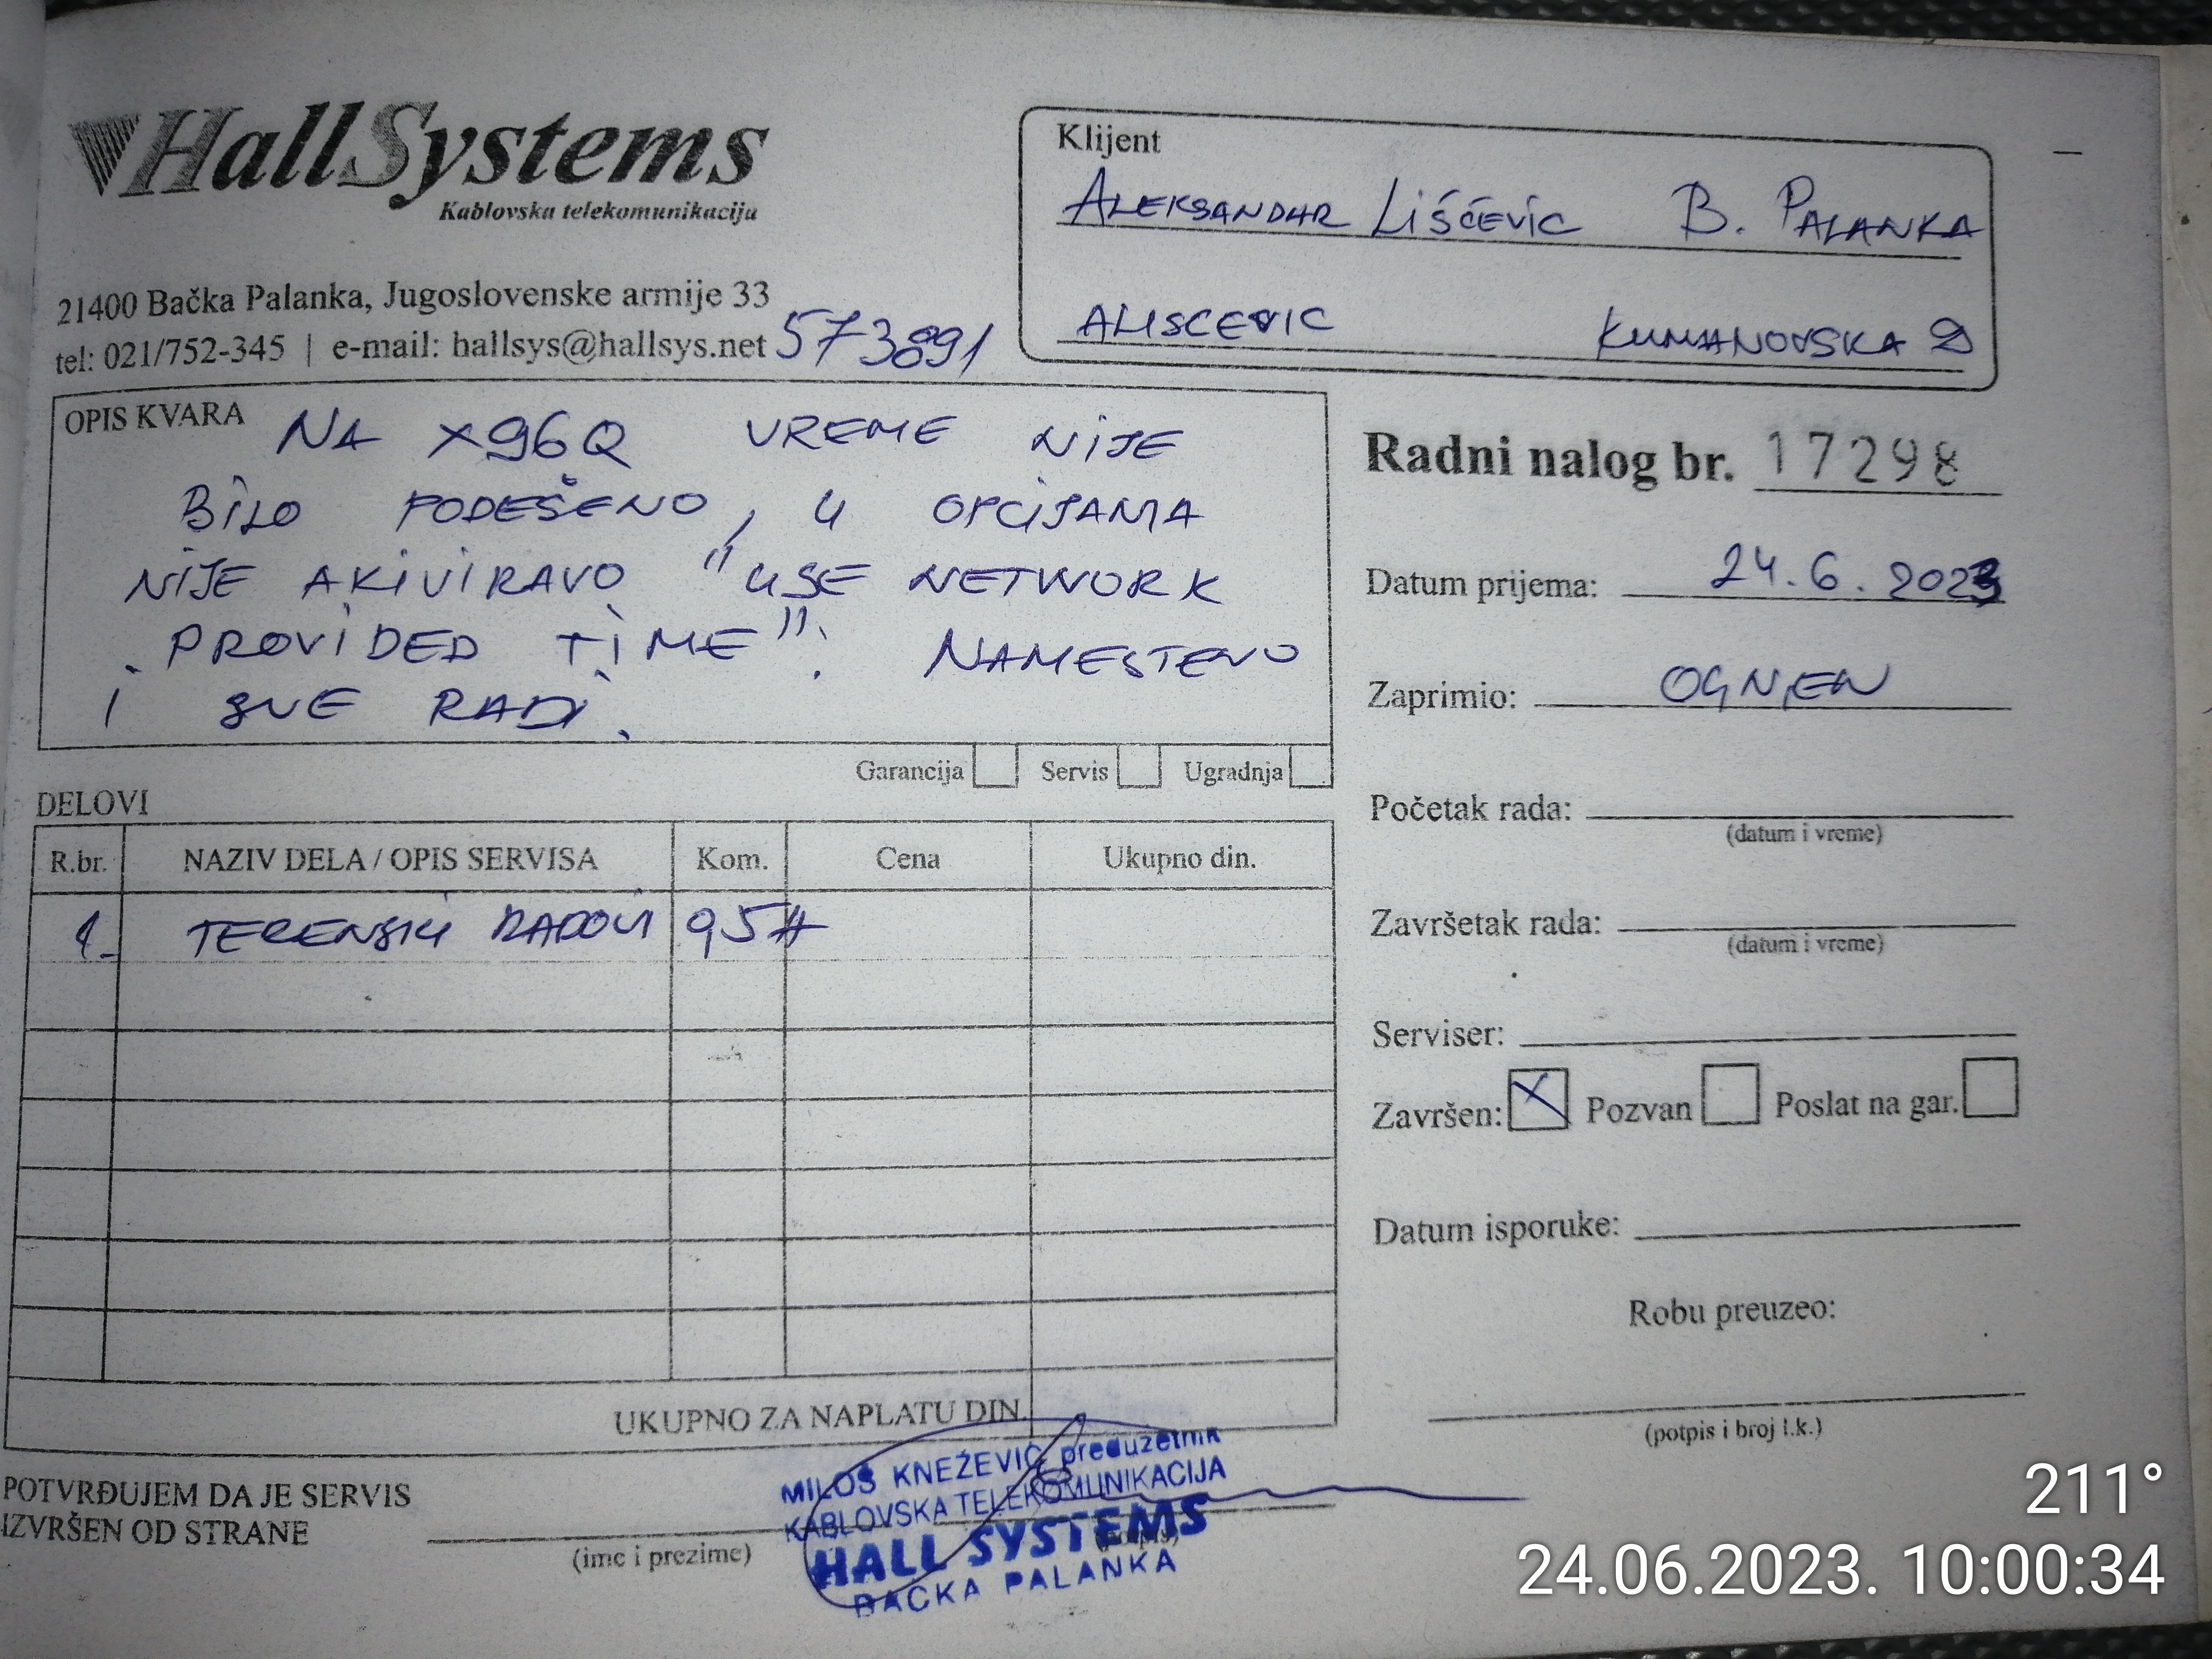 HallSystems
Kablovska telekomunikacija
21400 Bačka Palanka, Jugoslovenske armije 33
tel: 021/752-345 | e-mail: hallsys@hallsys.net
573891
Klijent
ALEKSANDAR LIŠĆEVIĆ B. PALANKA
ALISCEVIC KUMANOVSKA 2
OPIS KVARA
NA X96Q VREME NIJE
BILO PODEŠENO, U OPCIJAMA
NIJE AKIVIRANO "USE NETWORK
PROVIDED TIME". NAMESTENO
I SVE RADI.
Garancija Servis Ugradnja
Radni nalog br. 17298
Datum prijema: 24.6.2023
Zaprimio: OGNJEN
Početak rada:
(datum i vreme)
Završetak rada:
(datum i vreme)
Serviser:
Završen: X Pozvan Poslat na gar.
Datum isporuke:
Robu preuzeo:
(potpis i broj l.k.)
DELOVI
R.br. NAZIV DELA / OPIS SERVISA Kom. Cena Ukupno din.
1. TERENSKI RADOVI 0,5H
UKUPNO ZA NAPLATU DIN.
POTVRĐUJEM DA JE SERVIS
IZVRŠEN OD STRANE
(ime i prezime)
(potpis)
MILOŠ KNEŽEVIĆ preduzetnik
KABLOVSKA TELEKOMUNIKACIJA
HALL SYSTEMS
BAČKA PALANKA
211°
24.06.2023. 10:00:34